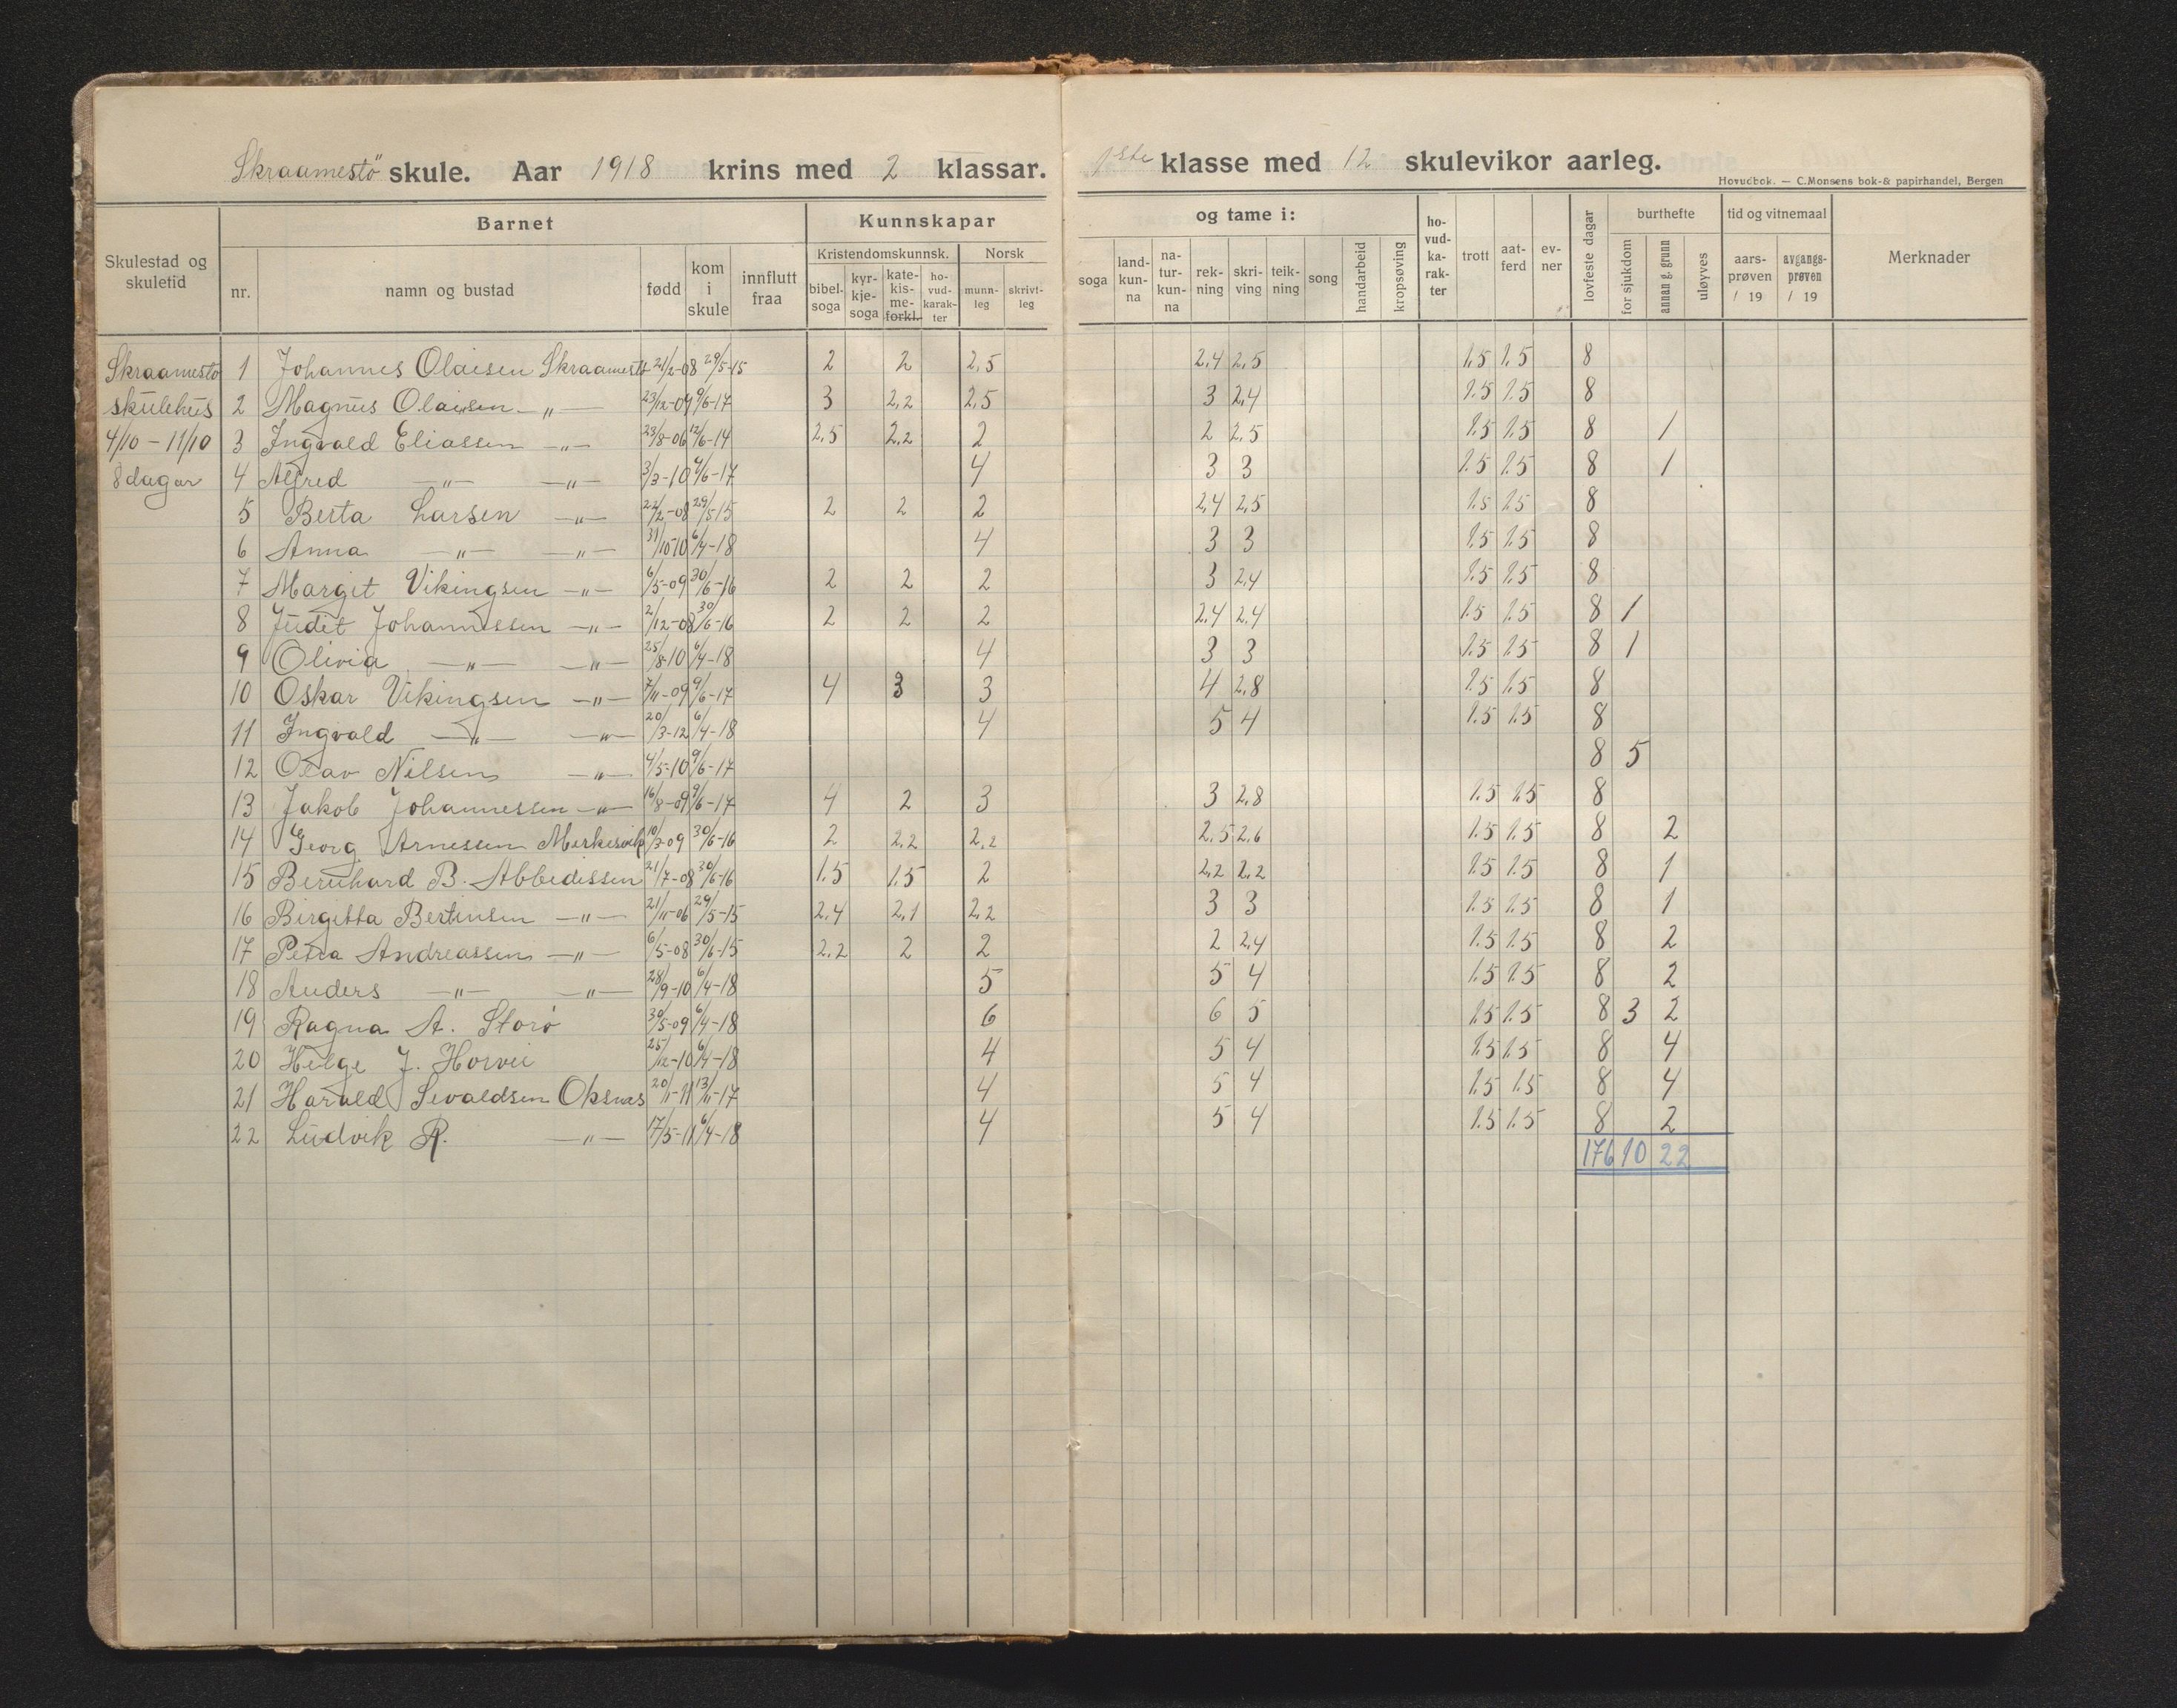 Skraamestö skule. Aar 1918 krins med 2 klassar. 1ste klasse med 12 skulevikor aarleg.
Hovudbok. — C.Monsens bok-& papirhandel, Bergen
Skulestad og skuletid
Barnet
nr.
namn og bustad
fødd
kom i skule
innflutt fraa
Kunnskapar
Kristendomskunnsk.
bibel-soga
kyr-kje-soga
kate-kis-me-forkl.
ho-vud-karak-ter
Norsk
munn-leg
skrivt-leg
og tame i:
soga
land-kun-na
na-tur-kun-na
rek-ning
skri-ving
teik-ning
song
handarbeid
kropsøving
ho-vud-ka-rak-ter
trott
aat-ferd
ev-ner
lovfeste dagar
burthefte
for sjukdom
annan g. grunn
uløyves
tid og vitnemaal
aars-prøven / 19
avgangs-prøven / 19
Merknader
Skraamestö
skulehus
4/10 – 11/10
8 dagar
1 Johannes Olaisen Skraamestö 21/2-08 29/5-15 2 2 2,5 2,4 2,5 1.5 1.5 8
2 Magnus Olaisen —"— 23/12-09 9/6-17 3 2,2 2,5 3 2,4 1.5 1.5 8
3 Ingvald Eliassen —"— 23/8-06 12/6-14 2,5 2,2 2 2 2,5 1.5 1.5 8 1
4 Alfred —"— —"— 3/3-10 9/6-17 4 3 3 1.5 1.5 8 1
5 Berta Larsen —"— 22/2-08 29/5-15 2 2 2 2,4 2,5 1.5 1.5 8
6 Anna —"— —"— 31/10-10 6/4-18 4 3 3 1.5 1.5 8
7 Margit Vikingsen —"— 6/5-09 30/6-16 2 2 2 3 2,4 1.5 1.5 8
8 Judit Johannessen —"— 2/12-08 30/6-16 2 2 2 2,4 2,4 1.5 1.5 8 1
9 Olivia —"— —"— 25/8-10 6/4-18 4 3 3 1.5 1.5 8 1
10 Oskar Vikingsen —"— 7/11-09 9/6-17 4 3 3 4 2,8 1.5 1.5 8
11 Ingvald —"— —"— 20/3-12 6/4-18 4 5 4 1.5 1.5 8
12 Olav Nilsen —"— 4/5-10 9/6-17 8 5
13 Jakob Johannessen —"— 16/8-09 9/6-17 4 2 3 3 2,8 1.5 1.5 8
14 Georg Arnessen Merkesvik 10/3-09 30/6-16 2 2,2 2,2 2,5 2,6 1.5 1.5 8 2
15 Bernhard B. Abbedissen 21/7-08 30/6-16 1.5 1.5 2 2,2 2,2 1.5 1.5 8 1
16 Birgitta Bertinsen —"— 21/11-06 29/5-15 2,4 2,1 2,2 3 3 1.5 1.5 8 1
17 Petra Andreassen —"— 6/5-08 30/6-15 2,2 2 2 2 2,4 1.5 1.5 8 2
18 Anders —"— —"— 28/9-10 6/4-18 5 5 4 1.5 1.5 8 2
19 Ragna A. Storø 30/5-09 6/4-18 6 6 5 1.5 1.5 8 3 2
20 Helge J. Horvei 25/12-10 6/4-18 4 5 4 1.5 1.5 8 4
21 Harald Sevaldsen Oksnæs 20/1-11 13/11-17 4 5 4 1.5 1.5 8 4
22 Ludvik R. —"— 17/5-11 6/4-18 4 5 4 1.5 1.5 8 2
176 10 22